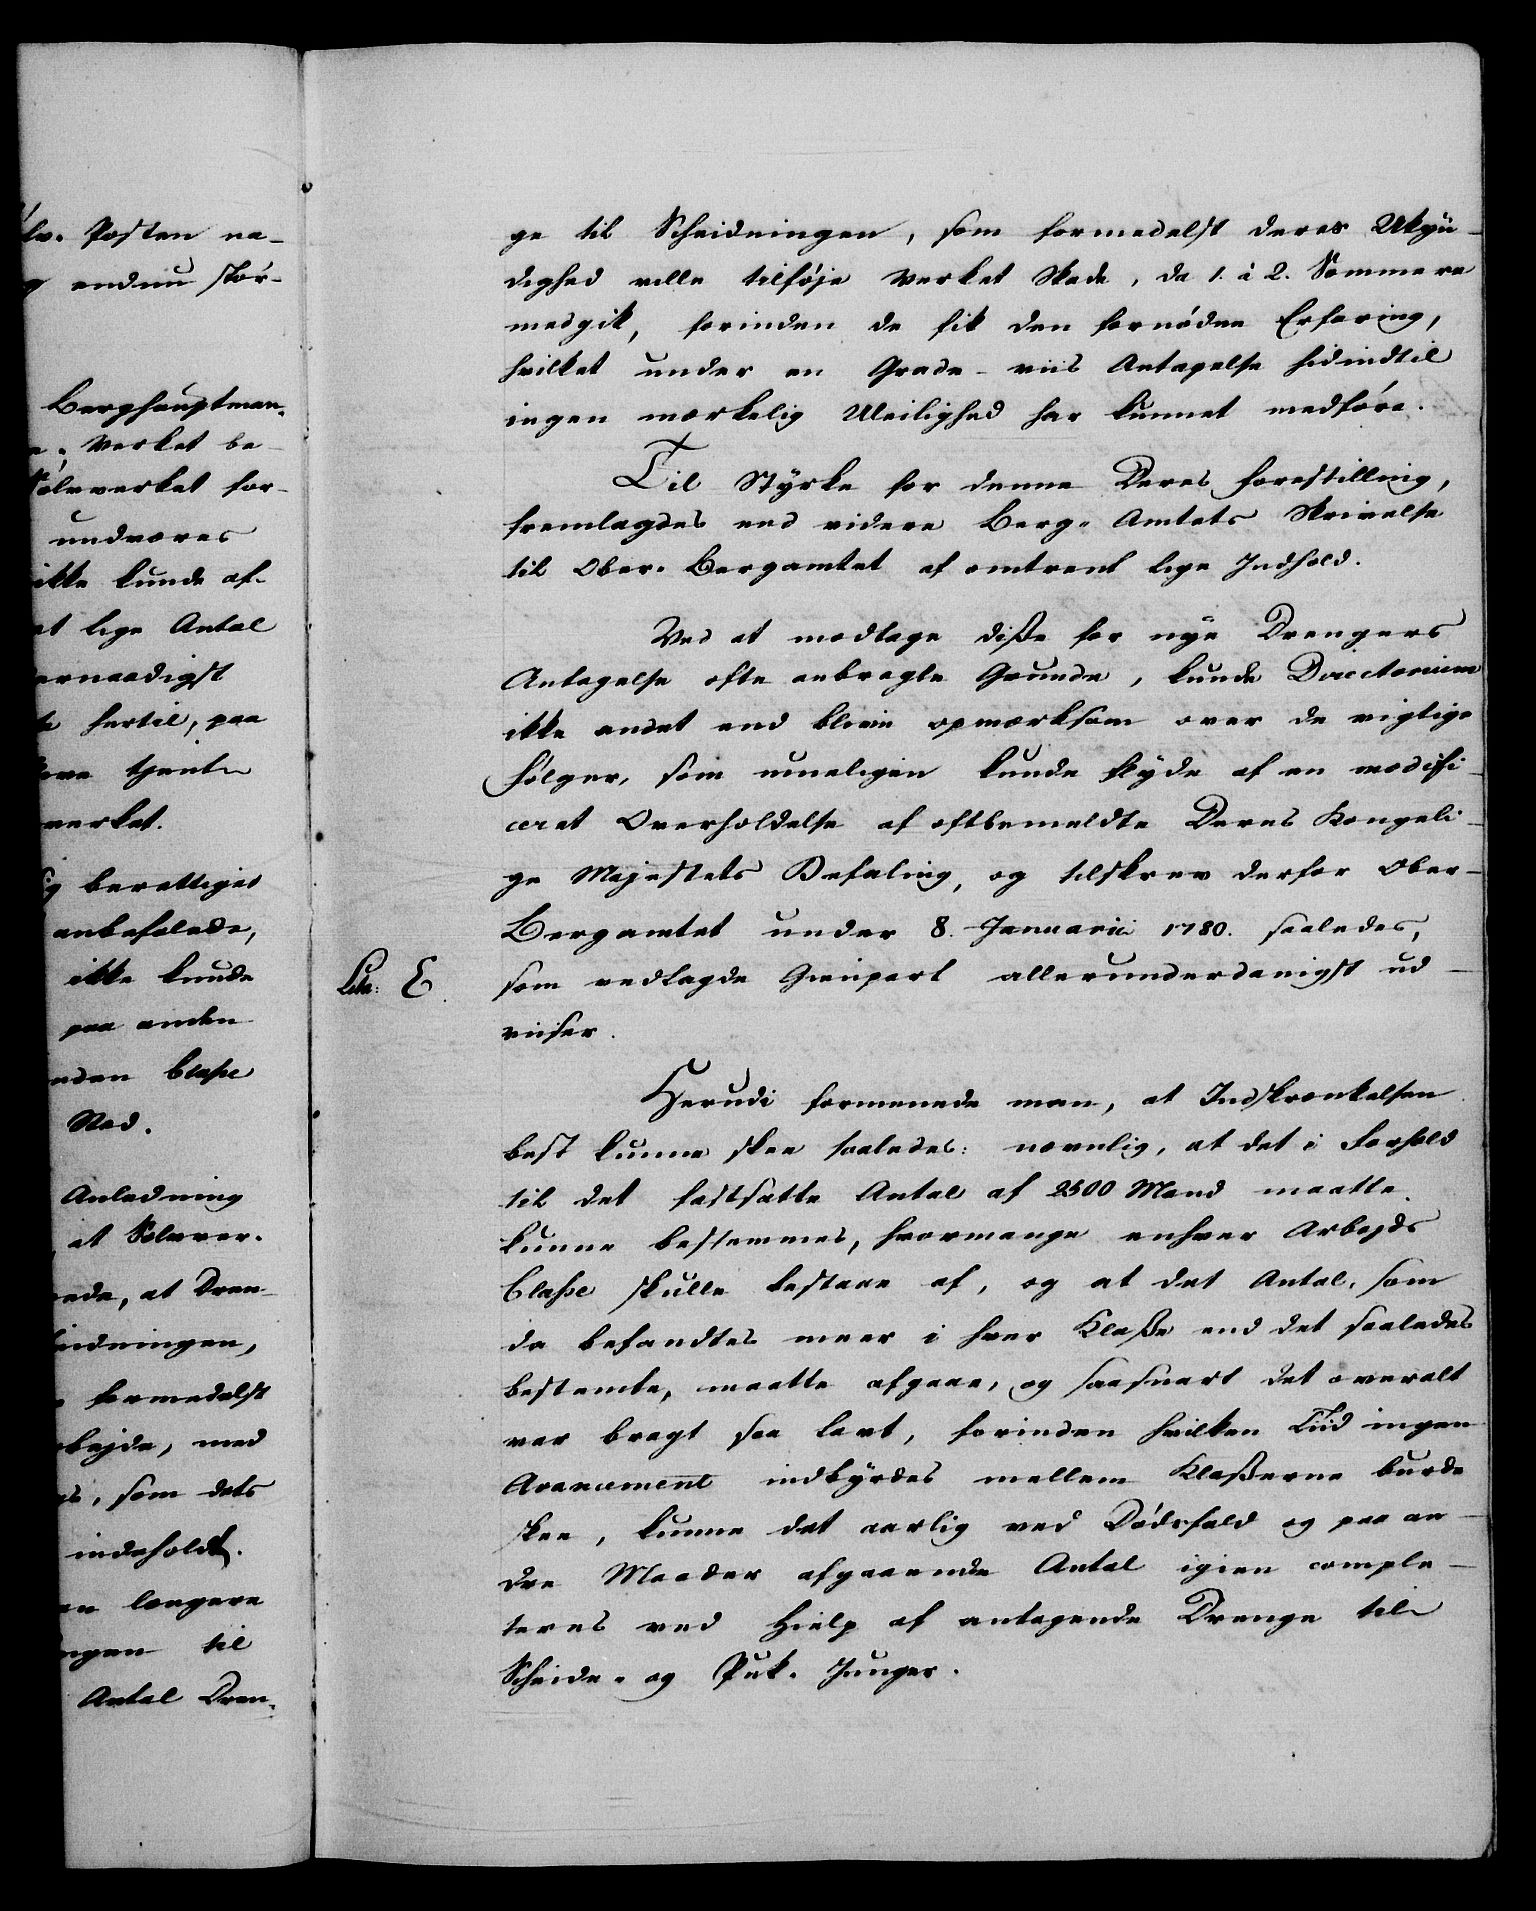 lv. Posten na-
endnu stör-
Berghauptman-
Verket be-
Sölvverket for-
undværes
ikke kunde af-
at lige Antal
ernaadigst
hertil, paa
tjente
verket.
berettiget
anbefalede,
ikke kunde
paa anden
nden Classe
Sted.
Anledning
at Sölvver-
ede, at Dren-
eidningen,
formedelst
rbejde, med
som dets
indeholdt.
en længere
ngen til
Antal Dren-
ge til Scheidningen, som formedelst deres Ukyn-
dighed ville tilföje Verket Skade, da 1. à 2. Sommere
medgik, forinden de fik den fornödne Erfaring,
hvilket under en Grade-viis Antagelse hidindtil
ingen mærkelig Uleilighed har kunnet medföre.
Til Styrke for denne Deres Forestilling,
fremlagdes end videre Berg-Amtets Skrivelse
til Ober-Bergamtet af omtrent lige Indhold.
Ved at modtage disse for nye Drengers
Antagelse ofte anbragte Grunde, kunde Directorium
ikke andet end blive opmærksom over de vigtige
Fölger, som umeligen kunde flyde af en modifi-
ceret Overholdelse af oftbemeldte Deres Kongeli-
ge Majestets Befaling, og tilskrev derfor Ober-
Bergamtet under 8. Januarii 1780. saaledes,
Litr: E.
som vedlagde Gienpart allerunderdanigst ud-
viiser.
Herudi formenede man, at Indskrænkelsen
best kunne skee saaledes: nemlig, at det i Forhold
til det fastsatte Antal af 2500 Mand maatte
kunne bestemmes, hvormange enhver Arbejds
Classe skulle bestaae af, og at det Antal, som
da befandtes meer i hver Klasse end det saaledes
bestemte, maatte afgaae, og saasnart det overalt
var bragt saa lavt, forinden hvilken Tiid ingen
Avancement indbyrdes mellem Klasserne burde
skee, kunne det aarlig ved Dödsfald og paa an-
dre Maader afgaaende Antal igien comple-
teres ved Hielp af antagende Drenge til
Scheide- og Puk-Junger.